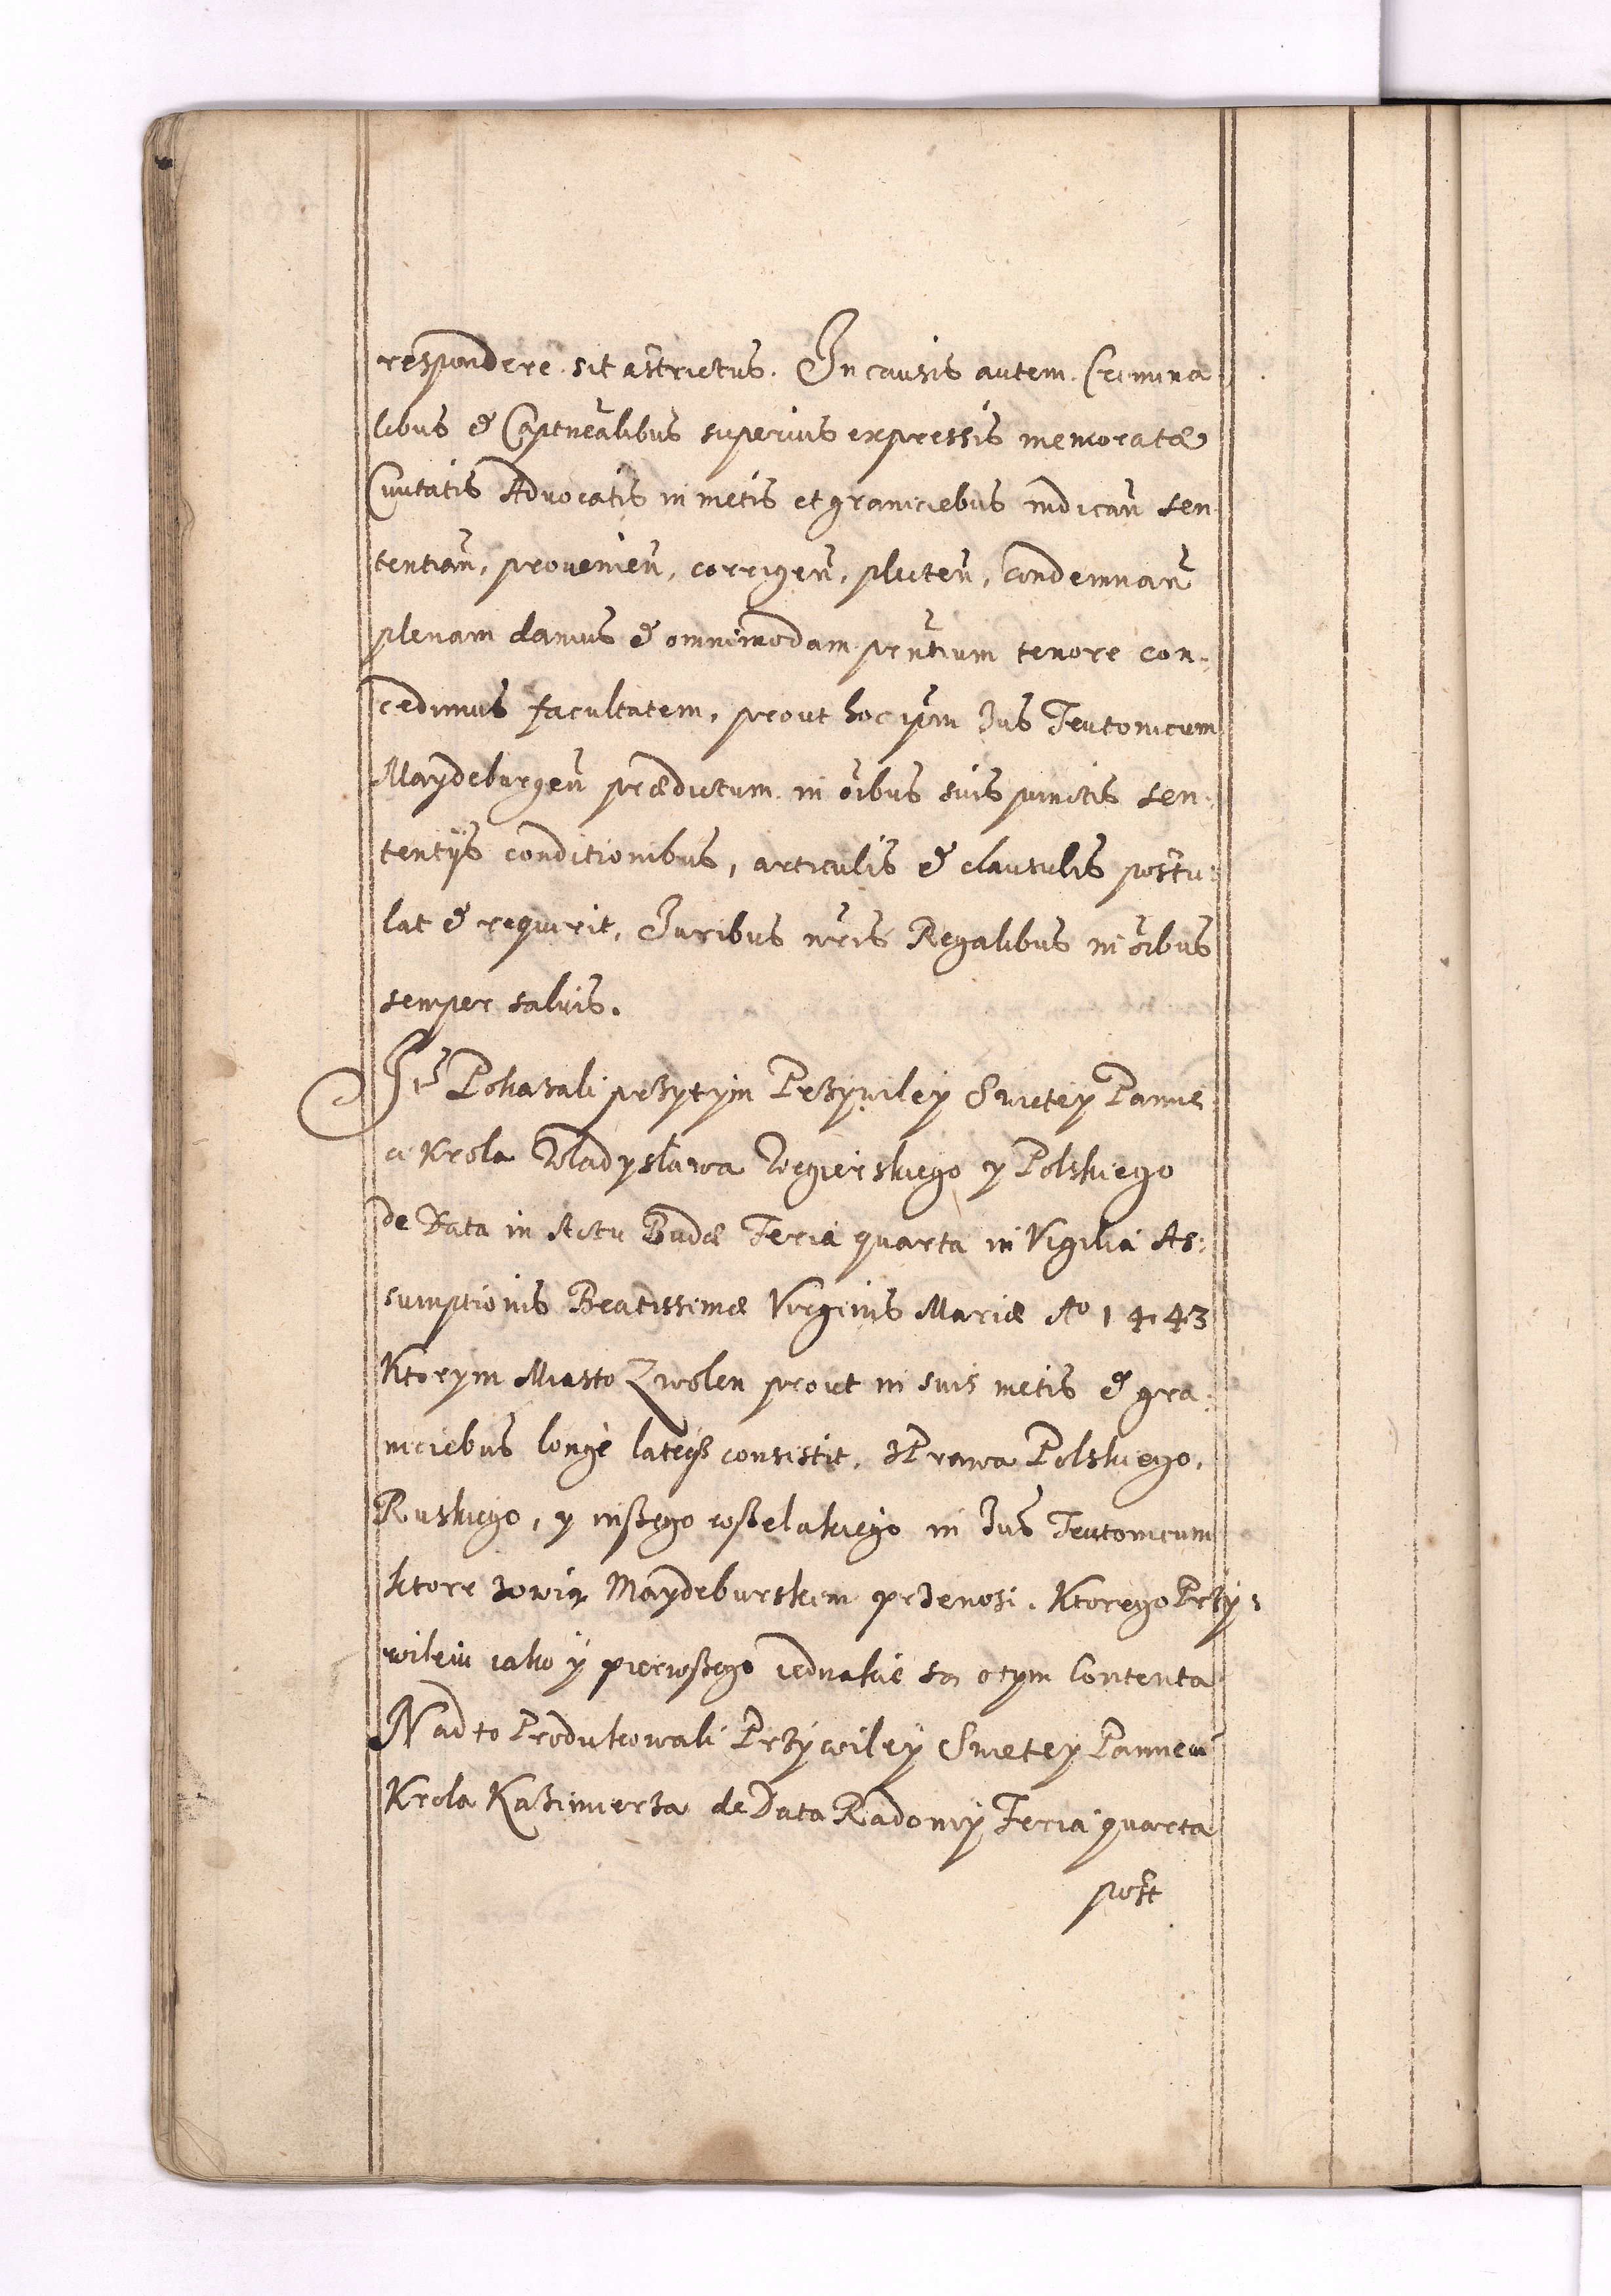 respondere sit astrictus. In causis autem Crimina
libus & Captnealibus superius expressis memoratæ
Civitatis Advocatis in metis et graniciebus iudicañ sen
tentiañ, provenieñ, corrigeñ, plecteñ, condemnañ
plenam damus & omnimodam prñtium tenore con:
cedimus facultatem, prout hoc ipm̃ Jus Teutonicum
Maydeburgeñ prædictum in oĩbus suis punctis sen:
tentijs conditionibus, articulis & clausulis postu:
lat & requirit, Juribus nr̃is Regalibus in oĩbus
semper salvis.
Itẽ Pokazali przytym Przywiley Swietey Pamie
ci Krola Wladysława Wegierskiego y Polskiego
de Data in Actu Budæ Feria quarta in Vigilia As:
sumptionis Beatissimæ Virginis Mariæ Ao 1443
Ktorym Miasto Zwolen prout in suis metis & gra:
niciebus longè lateqꝫ consistit, z Prawa Polskiego,
Ruskiego, y inßego wßelakiego in Jus Teutonicum
ktore zowią Maydeburskim przenosi. Ktorego Przy:
wileiu iako y pierwßego iednakie są otym Contenta
Nad to Produkowali Przywiley Swietey Pamieci
Krola Kazimierza de Data Radomÿ Feria quarta
post